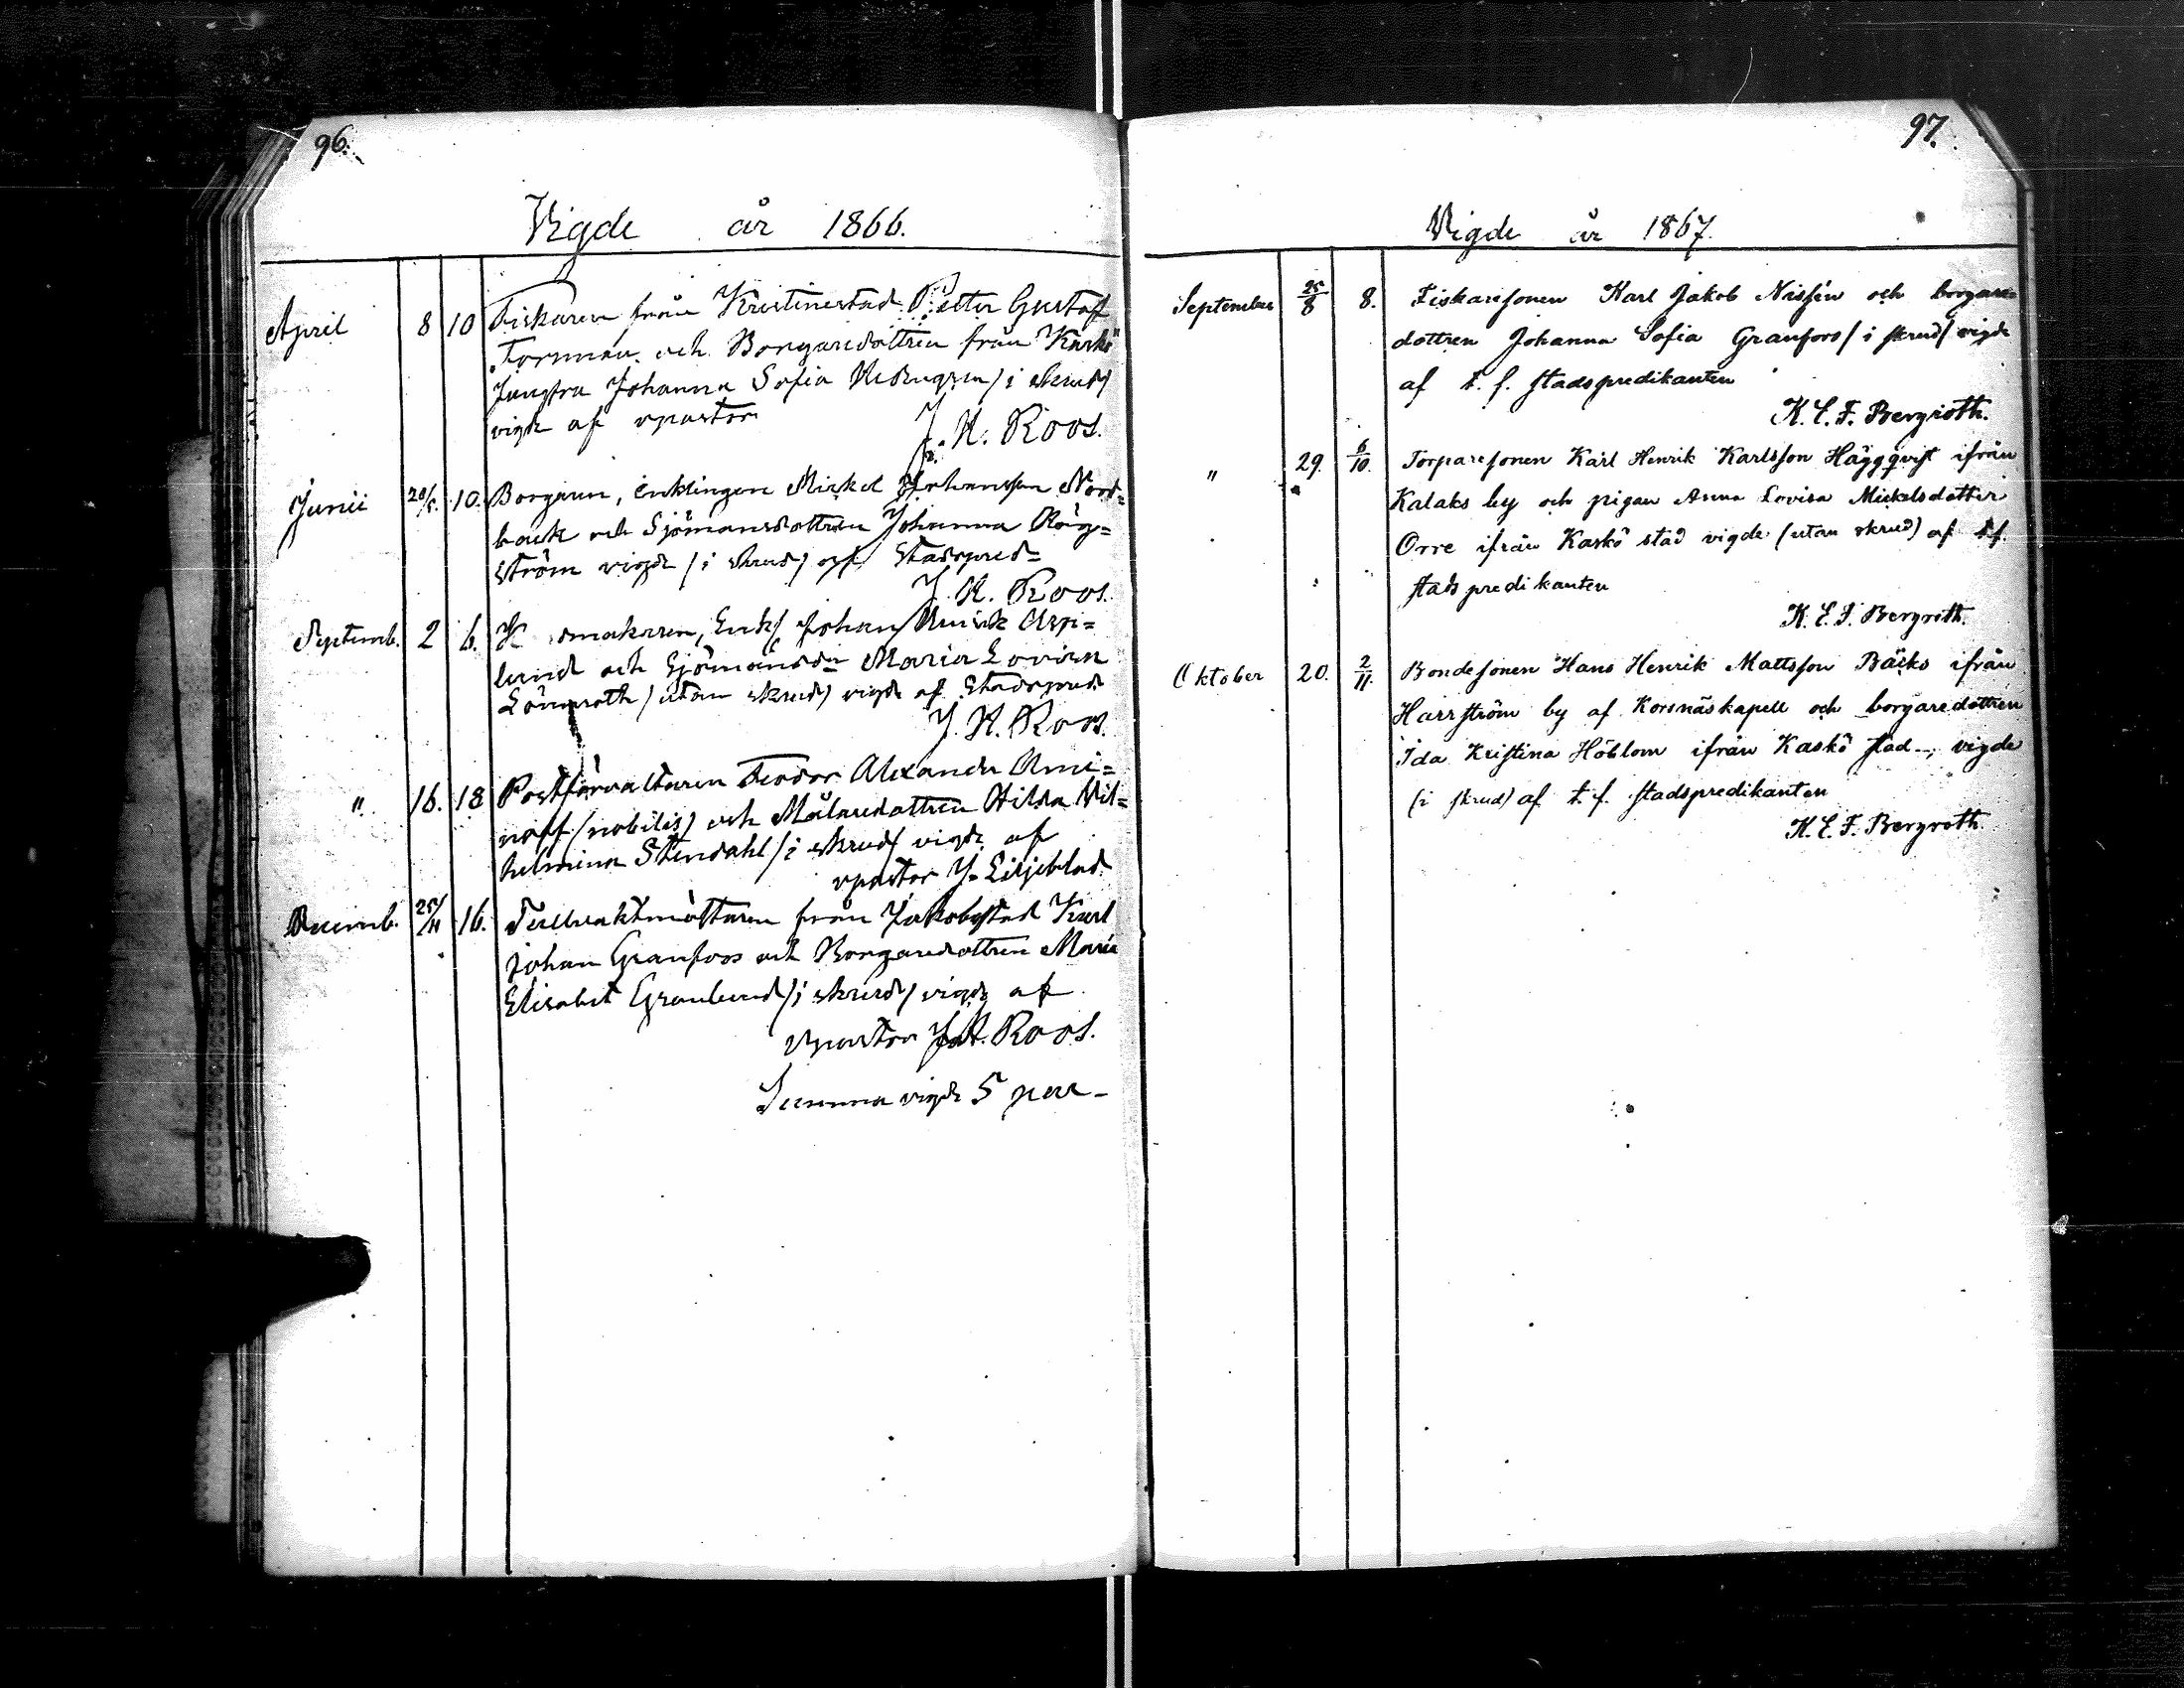 96.
Vigde år 1866.
April 8 10 Fiskaren från Kristinestad Petter Gustaf
Forsman och Borgaredottren från Kaskö
Jungfru Johanna Sofia /i skrud/
vigde af vpastor
J. K. Roos.
Junii 20/5. 10. Borgaren, Enklingen Mickel Johansson Nord=
back och Sjömansdottren Johanna Råg=
ström vigde /i skrud/ af Stadspred=
J. K. Roos.
Septemb. 2 6. Enkl Johan Henrik Asp=
lund och Sjömansdn Maria Lovisa
Lönnroth /utan skrud/ vigde af Stadspred
J. K. Roos.
" 16. 18 Postförvaltaren Feodor Alexander Ami=
noff /nobilis/ och Målaredottren Hilda Vil=
helmina Stendahl /i skrud/ vigde af
vpastor J. Liljeblad.
Decemb. 25/11 16. Tullvaktmästaren från Jakobstad Karl
Johan Granfors och Borgaredottren Maria
Elisabet Granlund /i skrud/ vigde af
vpastor J. K. Roos.
Summa vigde 5 par-
97.
Vigde år 1867.
September 25/8 8. Fiskaresonen Karl Jakob Nissén och borgare=
dottren Johanna Sofia Granfors /i skrud/ vigde
af t. f. stadspredikanten
K. E. F. Bergroth.
" 29. 6/10. Torparesonen Karl Henrik Karlsson Häggqvist ifrån
Kalaks by och pigan Anna Lovisa Mickelsdotter
Orre ifrån Kaskö stad vigde (utan skrud) af t.f.
stadspredikanten
K. E. F. Bergroth.
Oktober 20. 2/11. Bondesonen Hans Henrik Mattsson Bäcks ifrån
Harrström by af Korsnäs kapell och borgaredottren
Ida Kristina Höblom ifrån Kaskö stad -, vigde
(i skrud) af t. f. stadspredikanten
K. E. F. Bergroth.